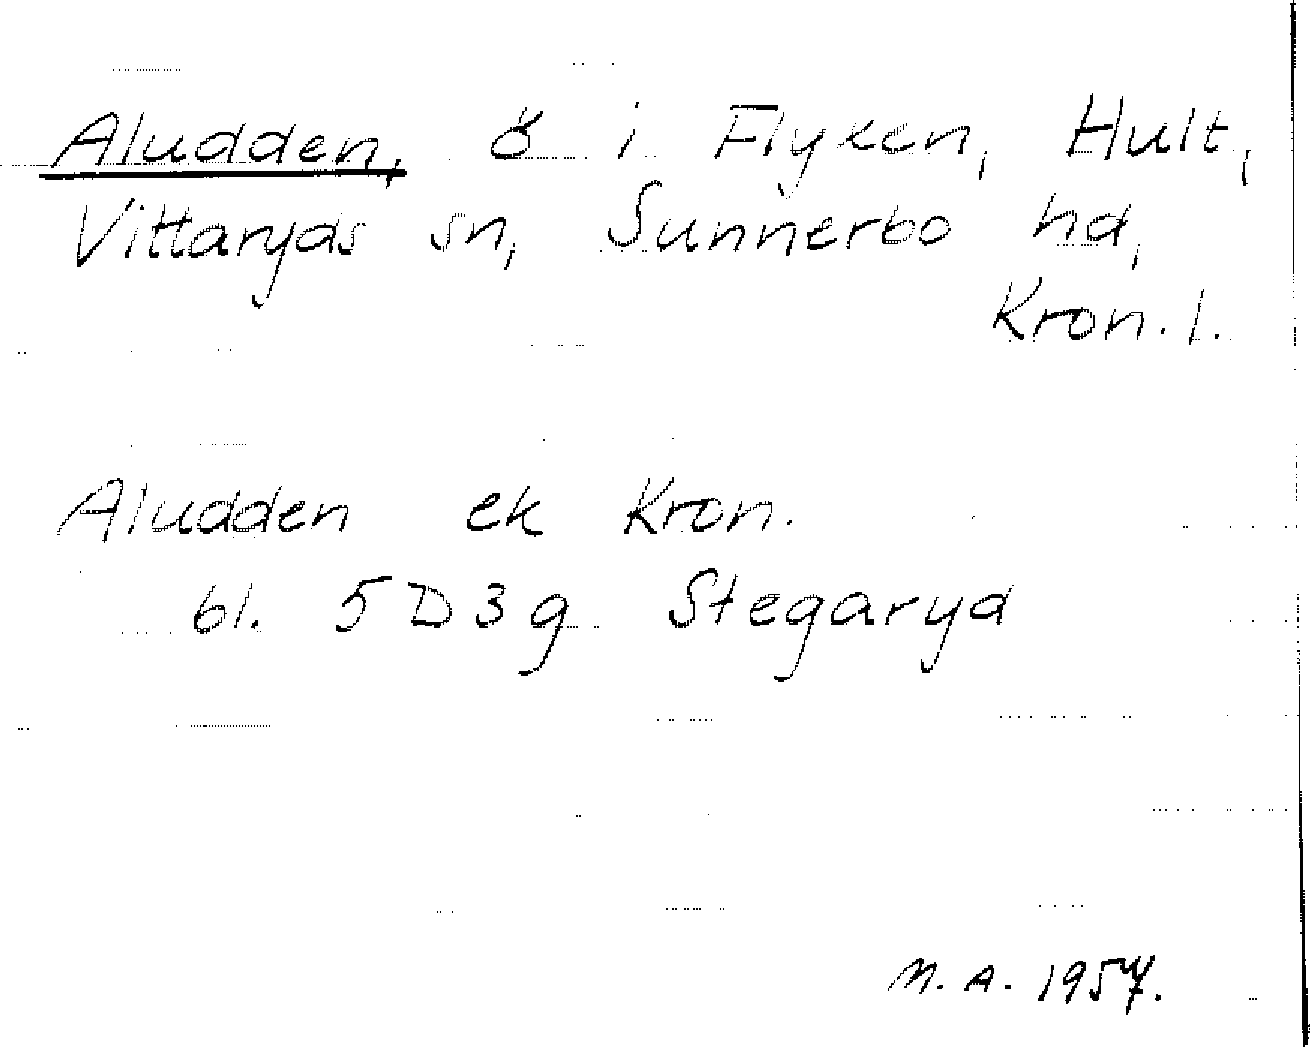 Aludden, ö i Flyken, Hult,
Vittaryds sn, Sunnerbo hd,
Kron. l.
Aludden ek Kron.
bl. 5D3g Stegaryd
M. A. 1957.